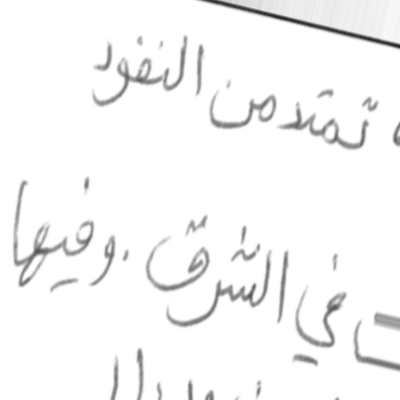 تمتد من النفود
في الشرق . وفيها